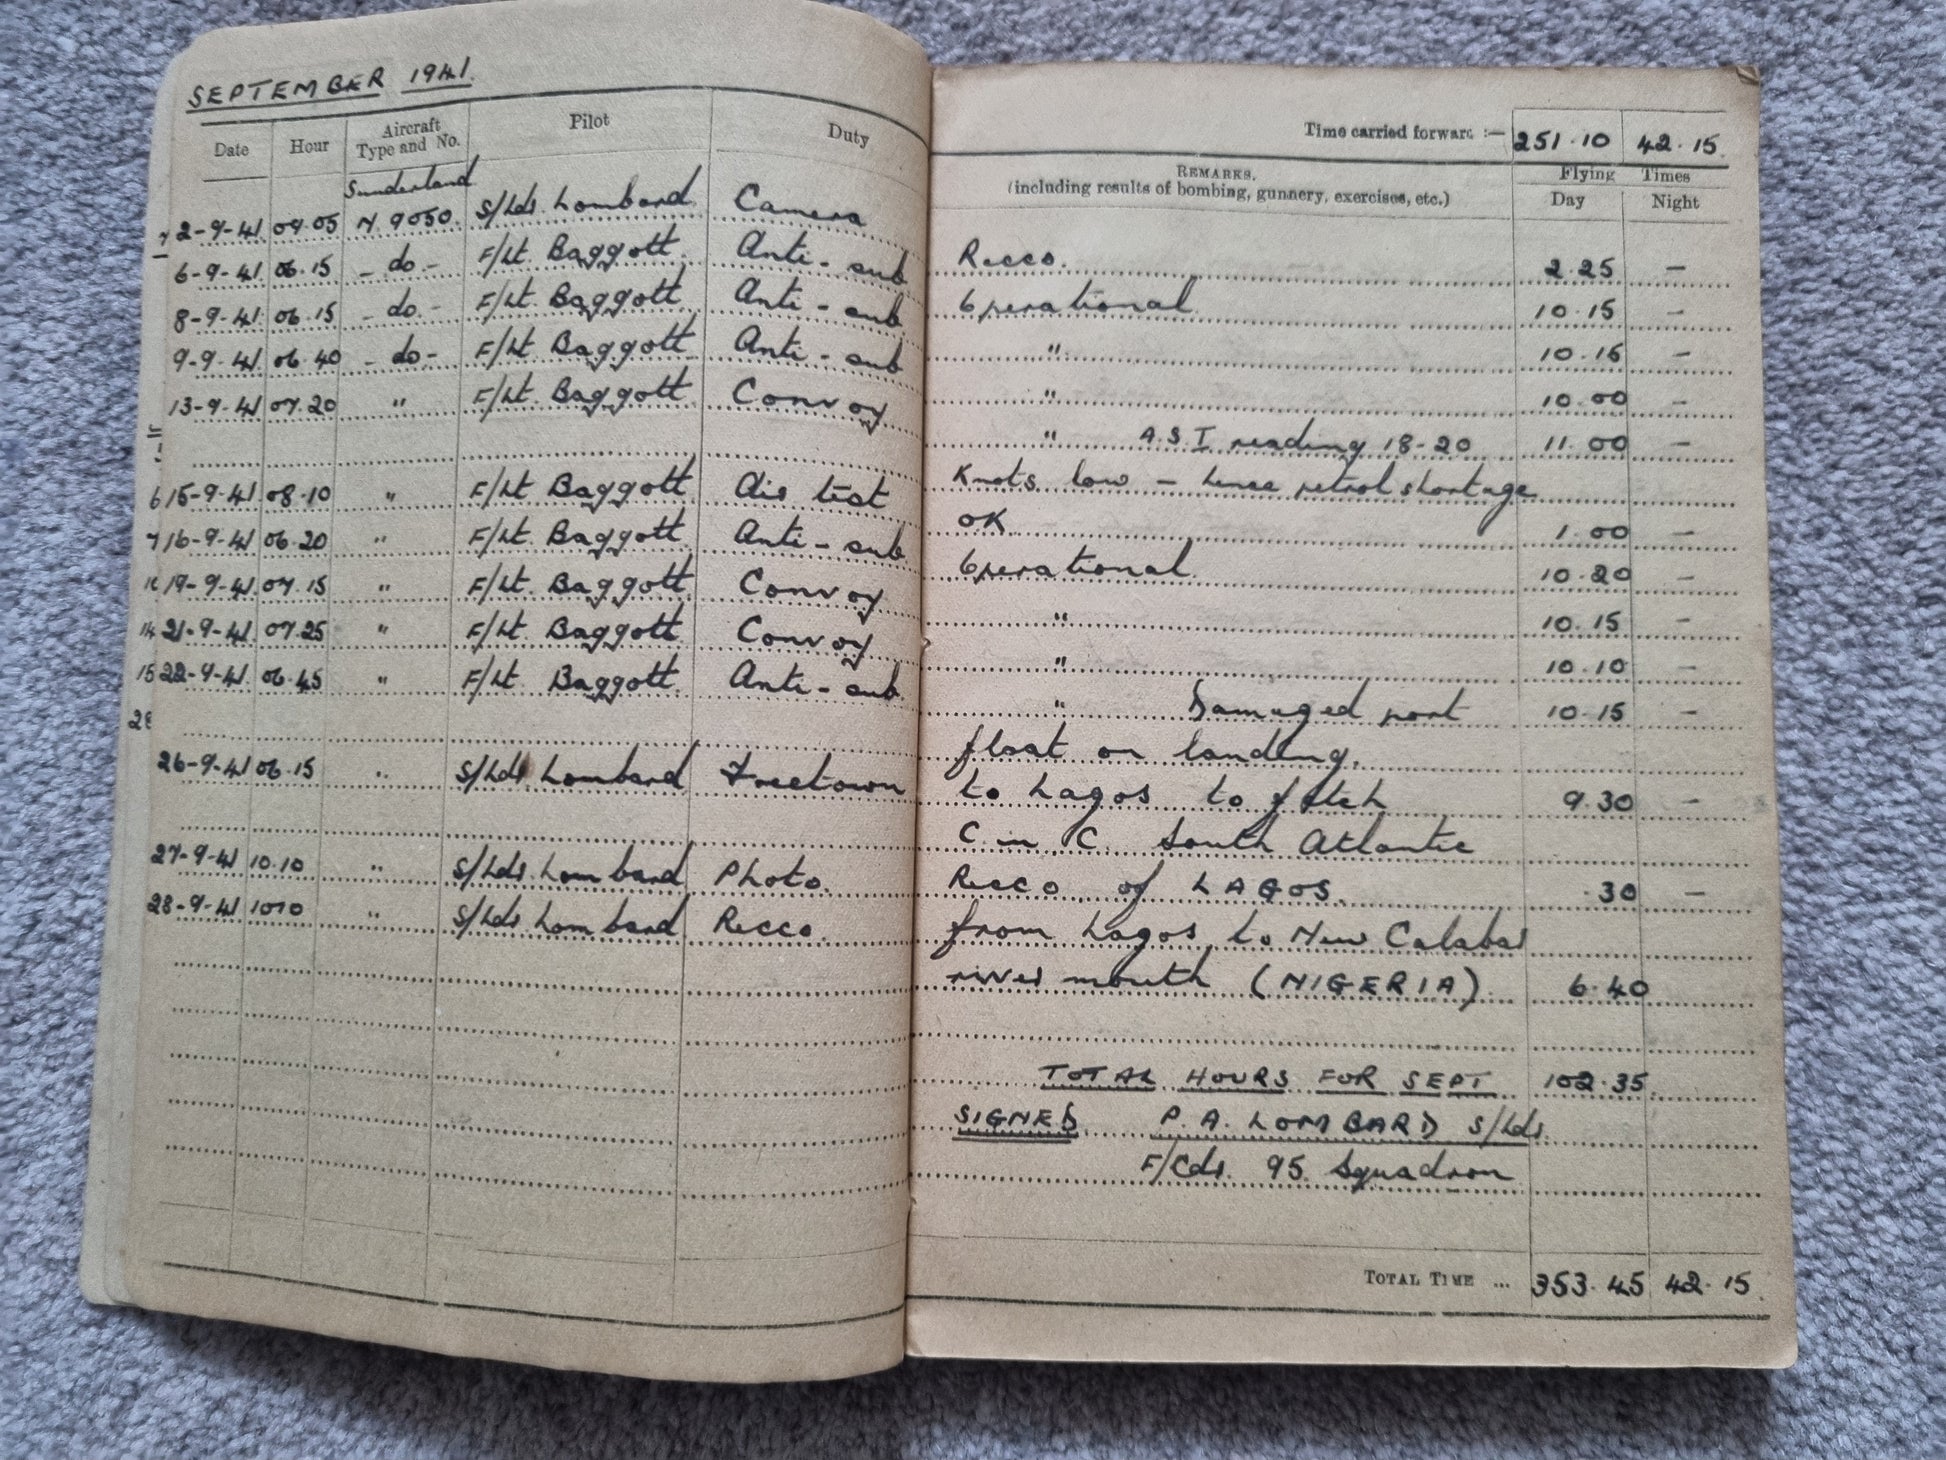 SEPTEMBER 1941.
Date Hour Aircraft Type and No. Pilot Duty
Time carried forward :— 251.10 42.15.
REMARKS. (including results of bombing, gunnery, exercises, etc.) Flying Times Day Night
Sunderland
2-9-41 09.05 N.9050. S/Ldr. Lombard Camera Recco. 2.25 —
6-9-41. 06.15 -do.- F/Lt. Baggott. Anti-sub Operational 10.15 —
8-9-41. 06.15 -do.- F/Lt. Baggott Anti-sub " 10.15 —
9-9-41. 06.40 -do- F/Lt. Baggott Anti-sub " 10.00 —
13-9-41 07.20 " F/Lt. Baggott Convoy " A.S.I reading 18-20 11.00 —
Knots low — hence petrol shortage
15-9-41 08.10 " F/Lt Baggott Air test OK 1.00 —
16-9-41 06.20 " F/Lt. Baggott Anti-sub Operational 10.20 —
19-9-41. 07.15 " F/Lt. Baggott Convoy " 10.15 —
21-9-41. 07.25 " F/Lt. Baggott Convoy " 10.10 —
22-9-41. 06.45 " F/Lt. Baggott. Anti-sub. " Damaged port 10.15 —
28 float on landing.
26-9-41 06.15 " S/Ldr. Lombard Freetown to Lagos to fetch 9.30 —
C. in C. South Atlantic
27-9-41 10.10 " S/Ldr. Lombard Photo. Recco of LAGOS. .30 —
28-9-41 1010 " S/Ldr Lombard Recco. from Lagos to New Calabar
river mouth (NIGERIA) 6.40
TOTAL HOURS FOR SEPT 102.35.
SIGNED P. A. LOMBARD S/Ldr.
F/Cdr. 95 Squadron
TOTAL TIME ... 353.45 42.15.